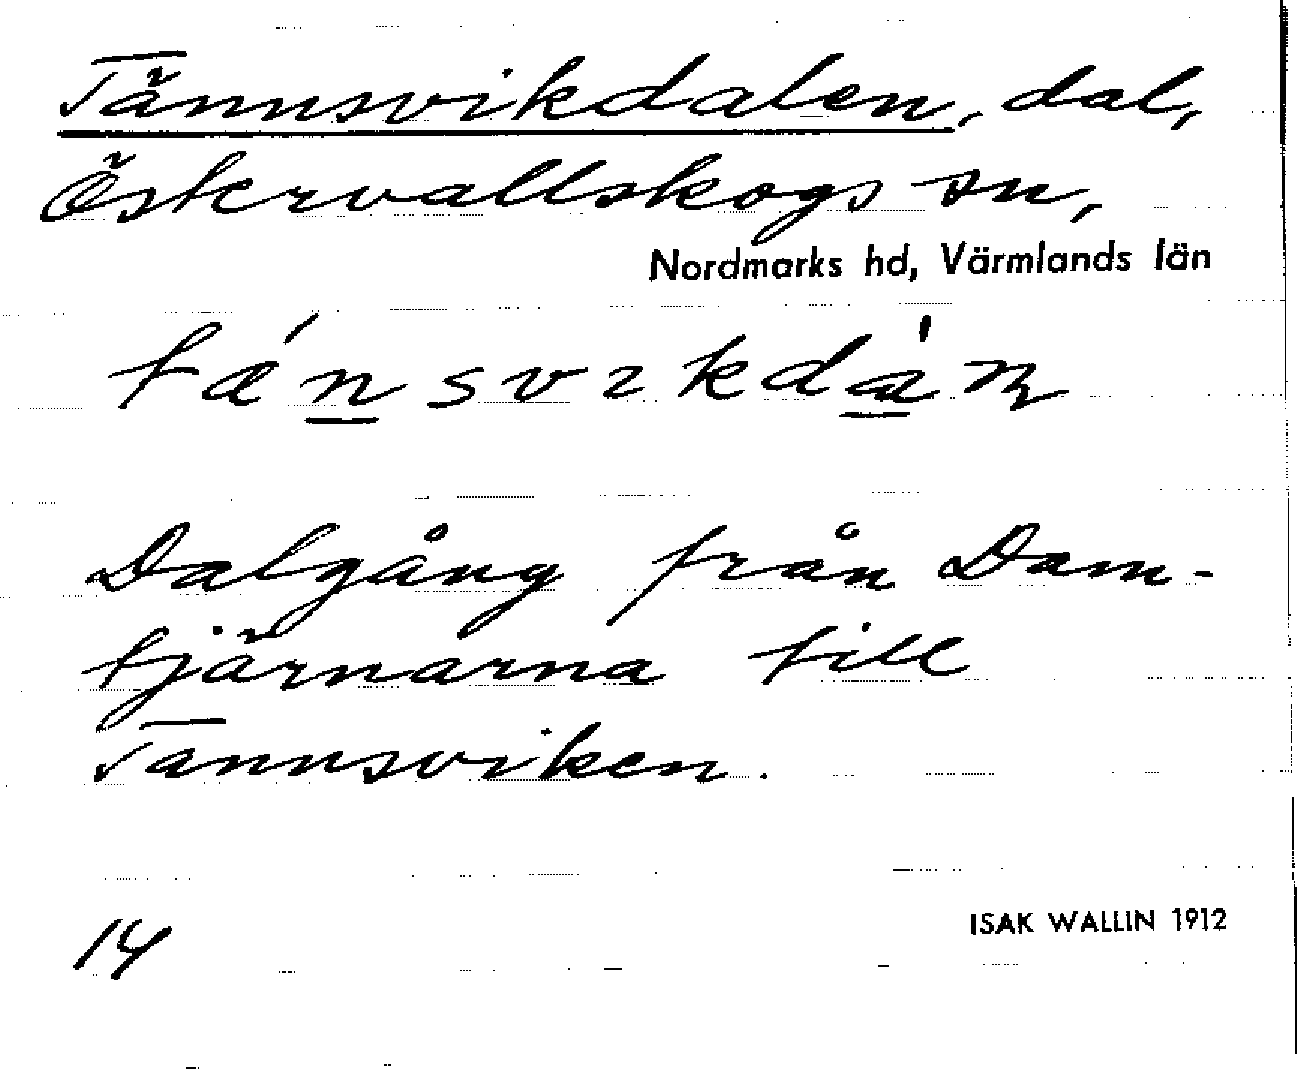 Tännsvikdalen, dal,
Östervallskogs sn,
Nordmarks hd, Värmlands län
Dalgång från Dam-
tjärnarna till
Tannsviken.
14
ISAK WALLIN 1912